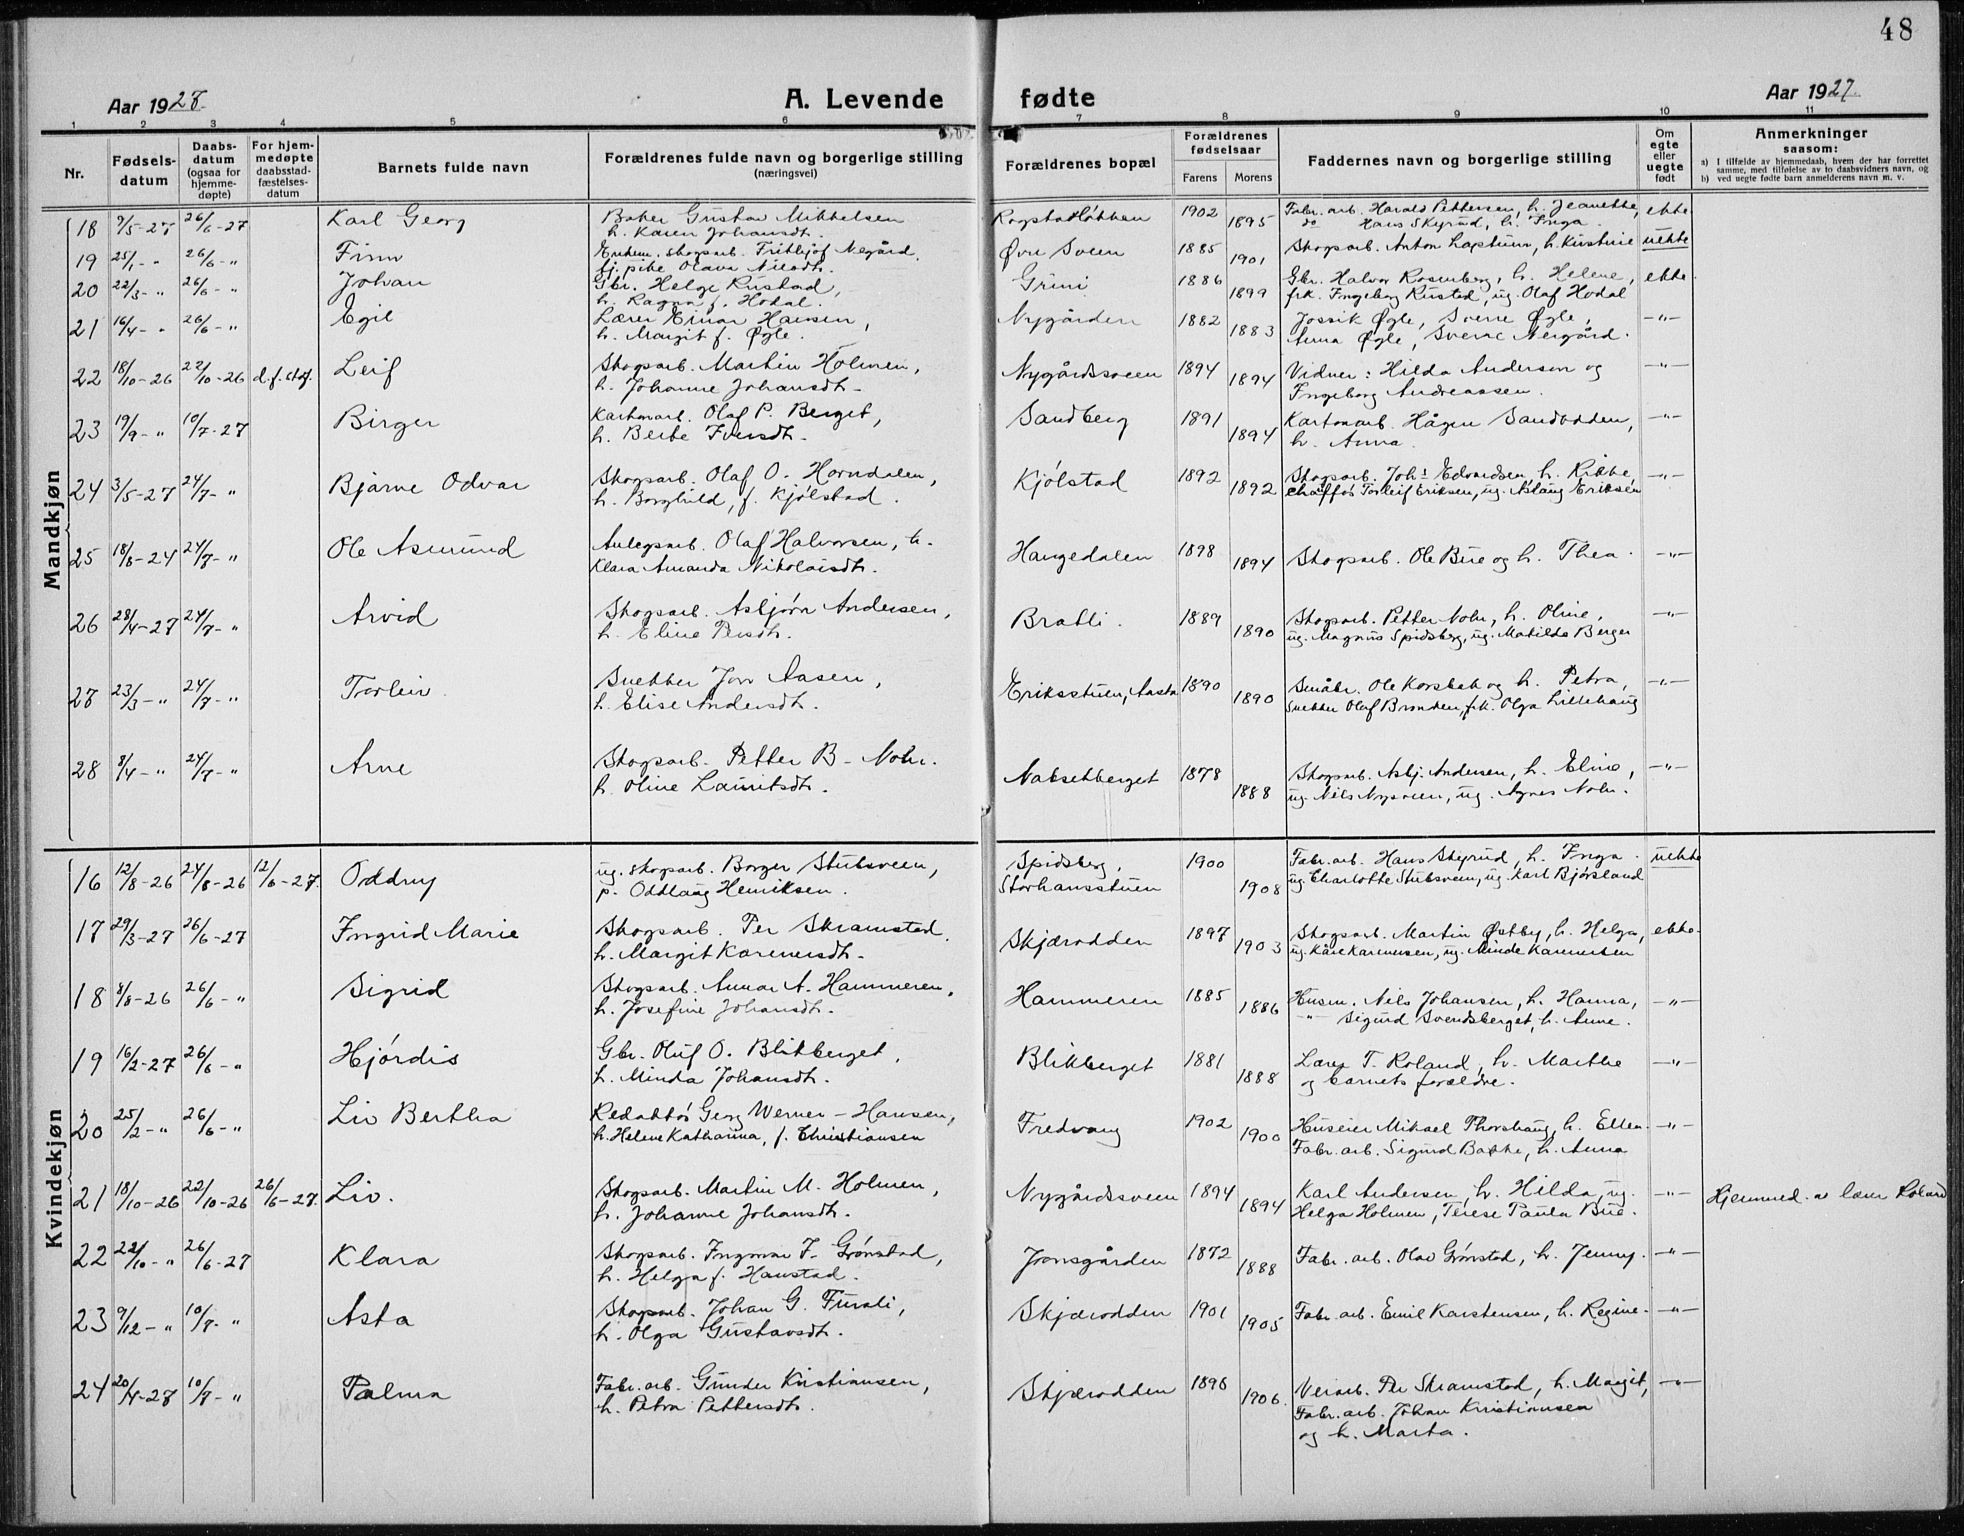 48
Aar 1927. A. Levende fødte Aar 1927.
1 2 3 4 5 6 7 8 9 10 11
Nr. Fødsels-datum Daabs-datum (ogsaa for hjemme-døpte) For hjem-medøpte daabsstad-fæstelses-datum Barnets fulde navn Forældrenes fulde navn og borgerlige stilling (næringsvei) Forældrenes bopæl Forældrenes fødselsaar Farens Morens Faddernes navn og borgerlige stilling Om egte eller uegte født Anmerkninger saasom:
a) I tilfælde av hjemmedaab, hvem der har forrettet samme, med tilføielse av to daabsvidners navn, og
b) ved uegte fødte barn anmelderens navn m. v.
Mandkjøn
18 9/5-27 26/6-27 Karl Georg Baker Gustav Mikkelsen Rogstadløkken 1902 1895 Fabr. arb. Harald Pettersen, h. Jeanette, ekte
h. Karen Johansdt. do Hans Skyrud, h. Inga
19 25/1-" 26/6-" Finn Enkem. skogsarb. Frithjof Negård Øvre Sveen 1885 1901 Skogsarb. Anton Løpstuen, h. Kristine uekte
fj. pike Olava Nilsdt.
20 22/3-" 26/6-" Johan Gbr. Helge Rustad, Grini 1886 1899 Gbr. Halvor Rosenberg, h. Helene, ekte
h. Ragna f. Hodal. frk. Ingeborg Rustad, ug. Olaf Hodal
21 16/4-" 26/6-" Egil Lærer Einar Hansen, Nygården 1882 1883 Jossik Øgle, Sverre Øgle, -"-
h. Margit f. Øgle. Anna Øgle, Sverre Nergård.
22 18/10-26 22/10-26 d.f. stf. Leif Skogsarb. Martin Holmen, Nygårdssveen 1894 1894 Vidner: Hilda Andersen og -"-
h. Johanne Johansdt. Ingeborg Andreassen.
23 19/9-" 10/7-27 Birger Kartonarb. Olaf P. Berget, Sandberg 1891 1894 Kartonarb. Hågen Sandodden, -"-
h. Berte Iversdt. h. Anna.
24 3/5-27 24/7-" Bjarne Odvar Skogsarb. Olaf O. Horndalen, Kjølstad 1892 1892 Skogsarb. Johs Edvardsen, h. Rikke, -"-
h. Borghild, f. Kjølstad. chaffør Torleif Eriksen, ug. Aslaug Eriksen
25 18/8-24 24/7-" Ole Asmund Anlegsarb. Olaf Halvorsen, h. Haugedalen 1898 1894 Skogsarb. Ole Bue og h. Thea. -"-
Klara Amanda Nikolaisdt.
26 28/4-27 24/7-" Arvid Skogsarb. Asbjørn Andersen, Bratli. 1889 1890 Skogsarb. Petter Nohr, h. Oline, -"-
h. Eline Persdt. ug. Magnus Spidsberg, ug. Matilde Berger
27 23/3-" 24/7-" Torleiv Snekker Jon Aasen, Eriksstuen, Aasta 1890 1890 Småbr. Ole Korsbak og h. Petra, -"-
h. Elise Andersdt. Snekker Olaf Brenden, frk. Olga Lillehaug
28 8/4-" 24/7-" Arne Skogsarb. Petter B. Nohr. Naksetberget 1878 1888 Skogsarb. Asbj. Andersen, h. Eline, -"-
h. Oline Lauritsdt. ug. Nils Nysveen, ug. Agnes Nohr.
Kvindekjøn
16 12/8-26 24/8-26 12/6-27. Oddny ug. skogsarb. Borger Stubsveen, Spidsberg, 1900 1908 Fabr. arb. Hans Skyrud, h. Inga. uekte
p. Oddlaug Henriksen. Storhansstuen ug. Charlotte Stubsveen, ug. Karl Bjørsland
17 29/3-27 26/6-27 Ingrid Marie Skogsarb. Per Skramstad. Skjærodden 1897 1903 Skogsarb. Martin Østby, h. Helga, ekte
h. Margit Karenersdt. ug. Kåre Karenusen, ug. Minde Karenusen
18 8/8-26 26/6-" Sigrid Skogsarb. Annar A. Hammeren, Hammeren 1885 1886 Husm. Nils Johansen, h. Hanna, -"-
h. Josefine Johansdt. -"- Sigurd Svendsberget, h. Anne.
19 16/2-27 26/6-" Hjørdis Gbr. Oluf O. Blikberget, Blikberget 1881 1888 Lærer T. Roland, h. Marthe -"-
h. Minda Johansdt. og barnets forældre.
20 25/2-" 26/6-" Liv Bertha Redaktør Georg Werner-Hansen, Fredvang 1902 1900 Huseier Mikael Thorshaug, h. Ellen. -"-
h. Helene Katharina, f. Christiansen Fabr. arb. Sigurd Bakke, h. Anna
21 18/10-26 22/10-26 26/6-27. Liv. Skogsarb. Martin M. Holmen, Nygårdssveen 1894 1894 Karl Andersen, h. Hilda, ug. -"- Hjemmed. av lærer Roland
h. Johanne Johansdt. Helga Holmen, Terese Paula Bue.
22 22/10-" 26/6-27 Klara Skogsarb. Ingvar I. Grønstad, Jonsgården 1872 1888 Fabr. arb. Olav Grønstad, h. Jenny. -"-
h. Helga f. Hanstad.
23 9/12-" 10/7-" Asta Skogsarb. Johan G. Furali, Skjærodden 1901 1905 Fabr. arb. Emil Karstensen, h. Regine. -"-
h. Olga Gustavsdt.
24 20/4-27 10/7-" Palma Fabr. arb. Gunder Kristiansen, Skjærodden 1898 1906. Verarb. Per Skramstad, h. Margit, -"-
h. Petra Pettersdt. Fabr. arb. Johan Kristiansen
og h. Marta.